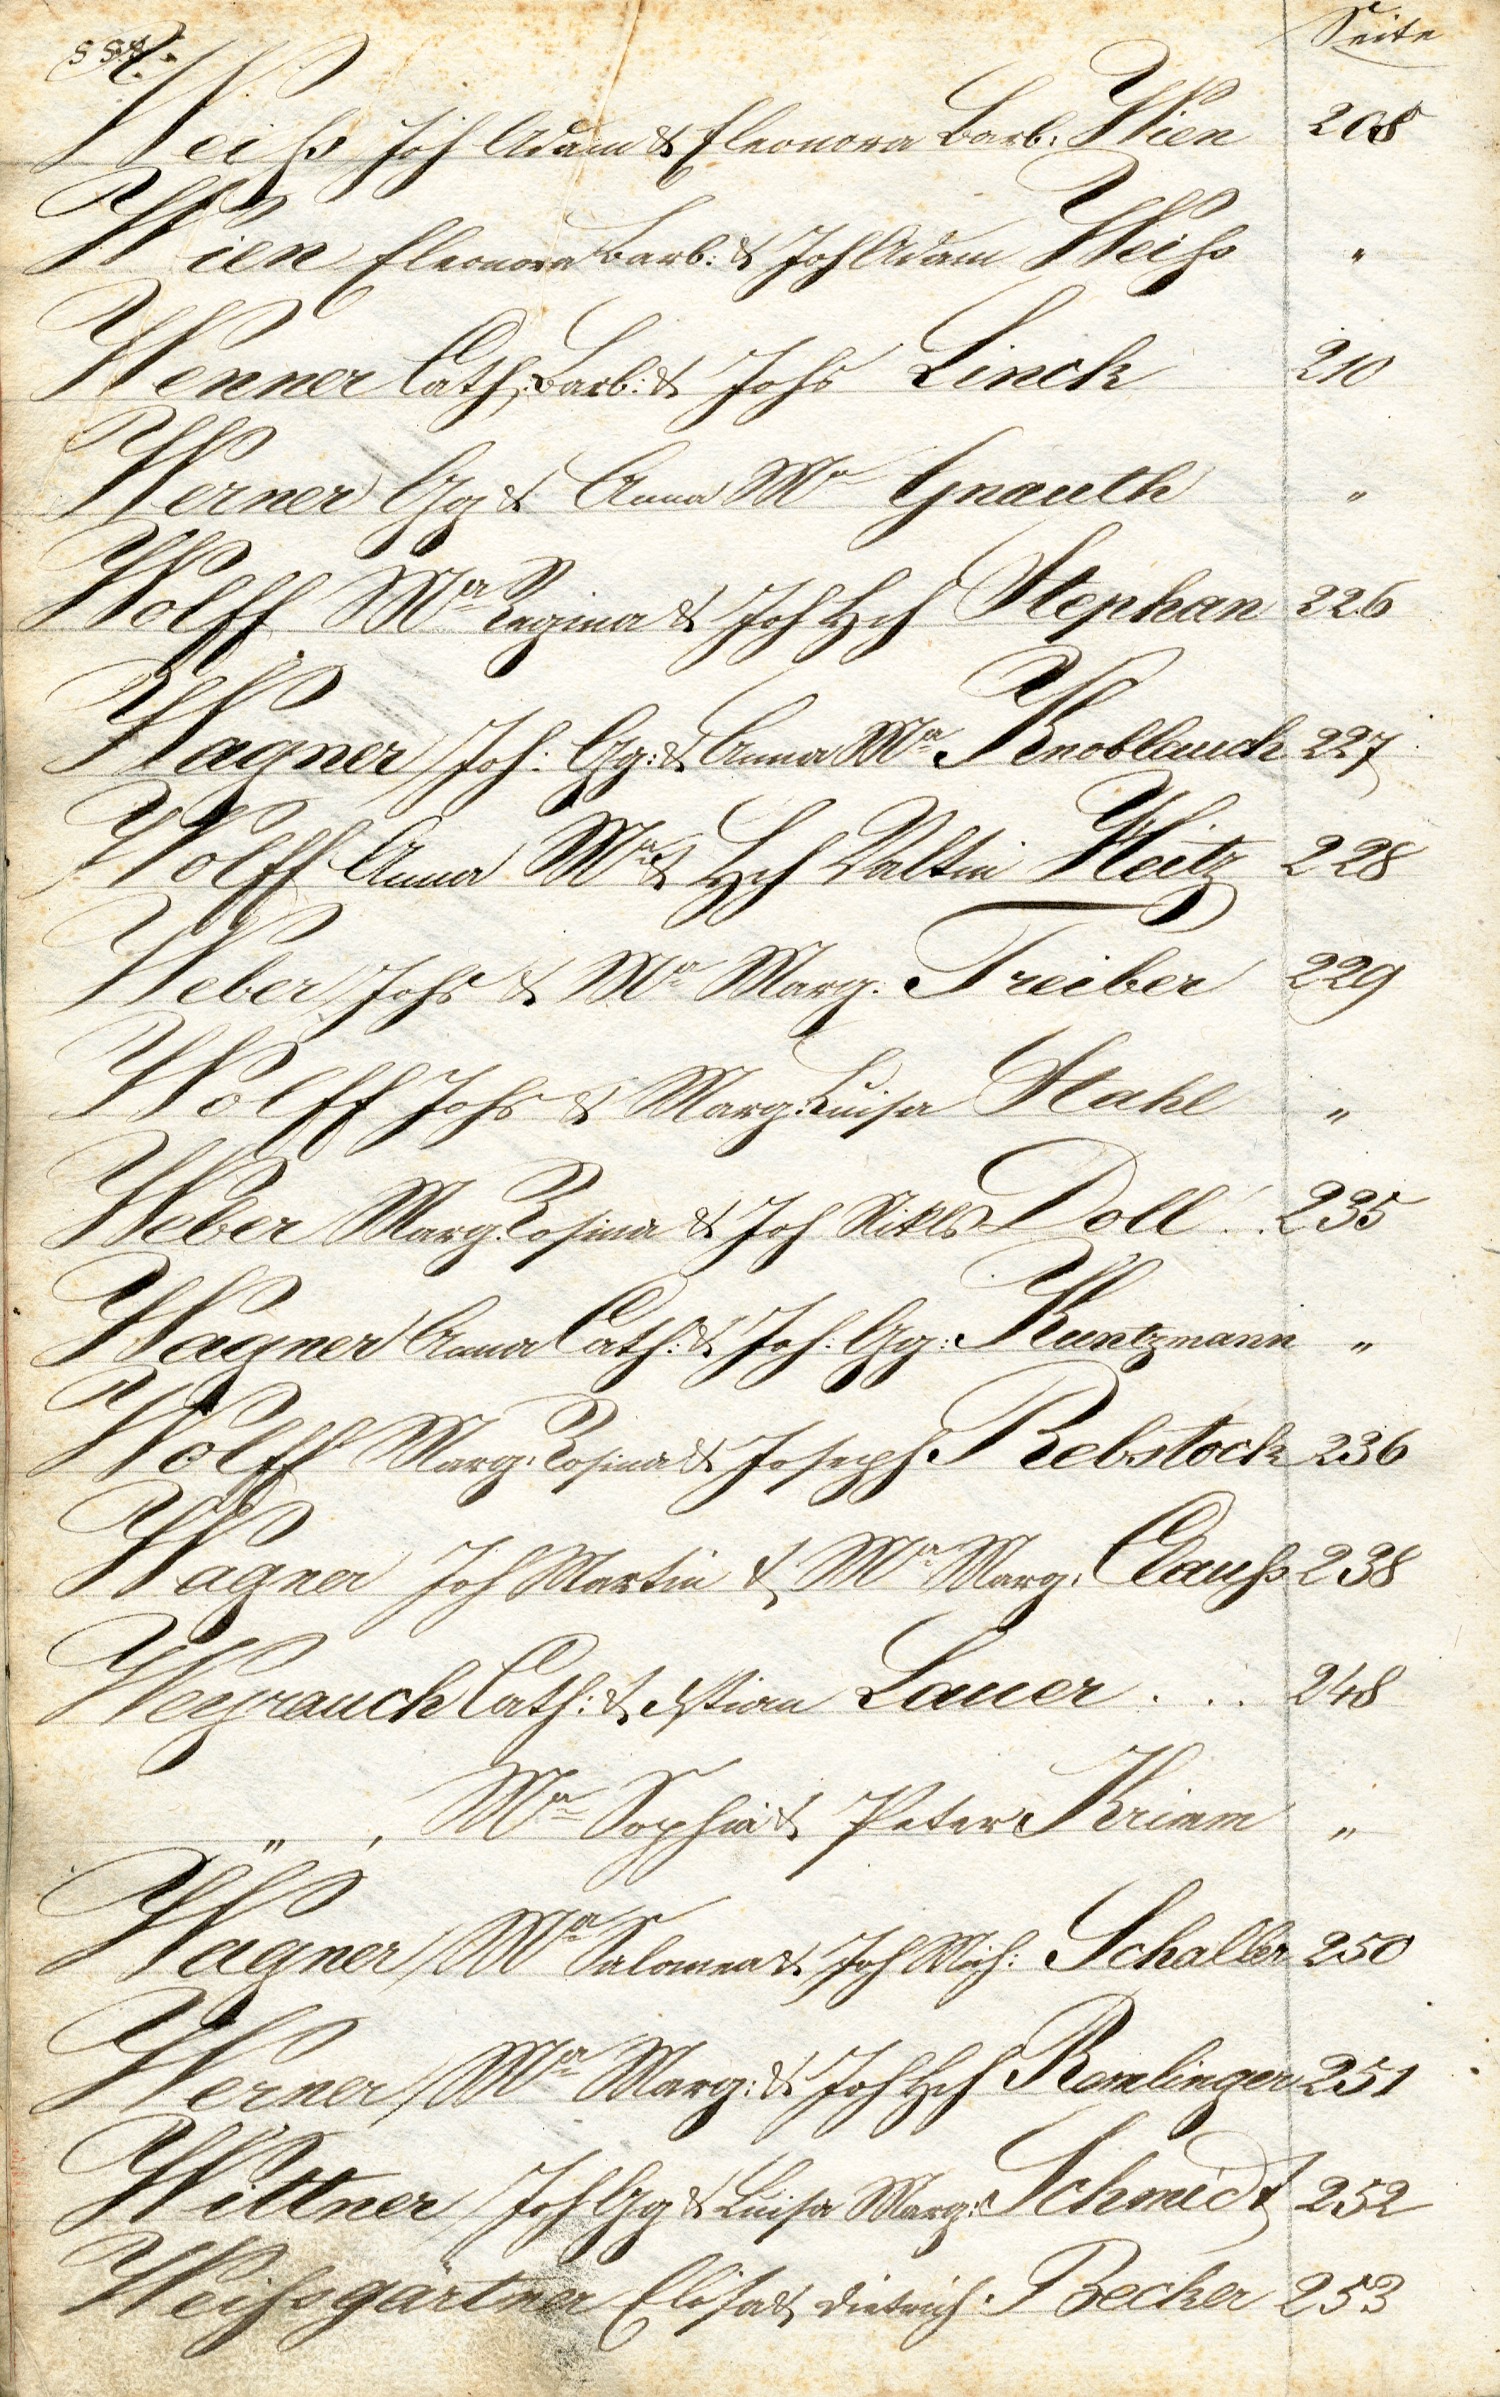 Seite
Weiß Joh Adam & Eleonora Barb. Wien 208
Wien Eleonora Barb: & Joh Adam Weiß "
Wenner Cath. Barb: & Johs Linck 210
Werner Gg & Anna Ma Gnauth "
Wolff Ma Regina & Joh Hch Stephan 226
Wagner Joh: Gg: & Anna Ma Knoblauch 227
Wolff Anna Ma & Hch Valtin Heitz 228
Weber Johs & Ma Marg. Treiber 229
Wolff Johs & Marg. Luisa Stahl "
Weber Marg. Rosina & Joh Nikls Doll . . 235
Wagner Anna Cath: & Joh: Gg: Kuntzmann "
Wolff Marg. Rosina & Joseph Rebstock 236
Wagner Joh Martin & Ma Marg. Clauß 238
Weyrauch Cath: & Xstian Lauer . . . 248
" , Ma Sophia & Peter Krimm "
Wagner Ma Salomea & Joh Mich: Schaller 250
Werner Ma Marg: & Joh Hch Remlinger 251
Wittner Joh Gg & Luisa Marg: Schmidt 252
Weißgärtner Elisa & Dietrich Becker 253